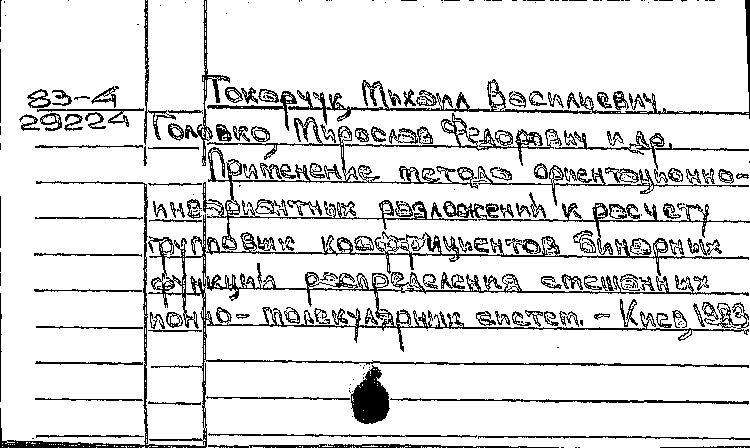 83-4
29224
Токарчук, Михаил Васильевич.
Головко, Мирослав Федорович и др.
Применение метода ориентационно-
инвариантных разложений к расчету
групповых коэффициентов бинарных
функций распределения смешанных
ионно-молекулярных систем. - Киев, 1983